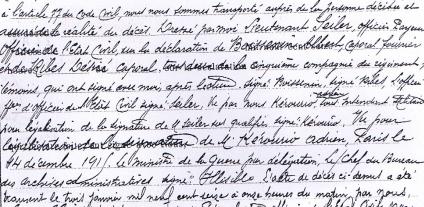 à l'article 77 du Code Civil, nous nous sommes transporté auprès de la personne décédée et
assuré de la réalité du décès. Dressé par moi Lieutenant Seiler, officier Payeur
Officier de l'Etat Civil, sur la déclaration de caporal fourrier
et de Ribes Désiré caporal, tous deux de la cinquième compagnie du régiment,
témoins, qui ont signé avec moi après lecture, signé: signé Ribes, l'officier
d'officier de l'Etat Civil signé: Seiler, Vu par nous Kérourio, sous Intendant militaire
pour légalisation de la signature de M. Seiler sus qualifié, signé: Kérourio, Vu pour
légalisation de la signature de Mr Kérourio Adrien, Paris le
14 décembre 1915, le Ministre de la Guerre par délégation, le Chef du Bureau
des archives administratives signé: L'acte de décès ci-dessus a été
transcrit le trois janvier mil neuf cent seize à onze heures du matin, par nous,